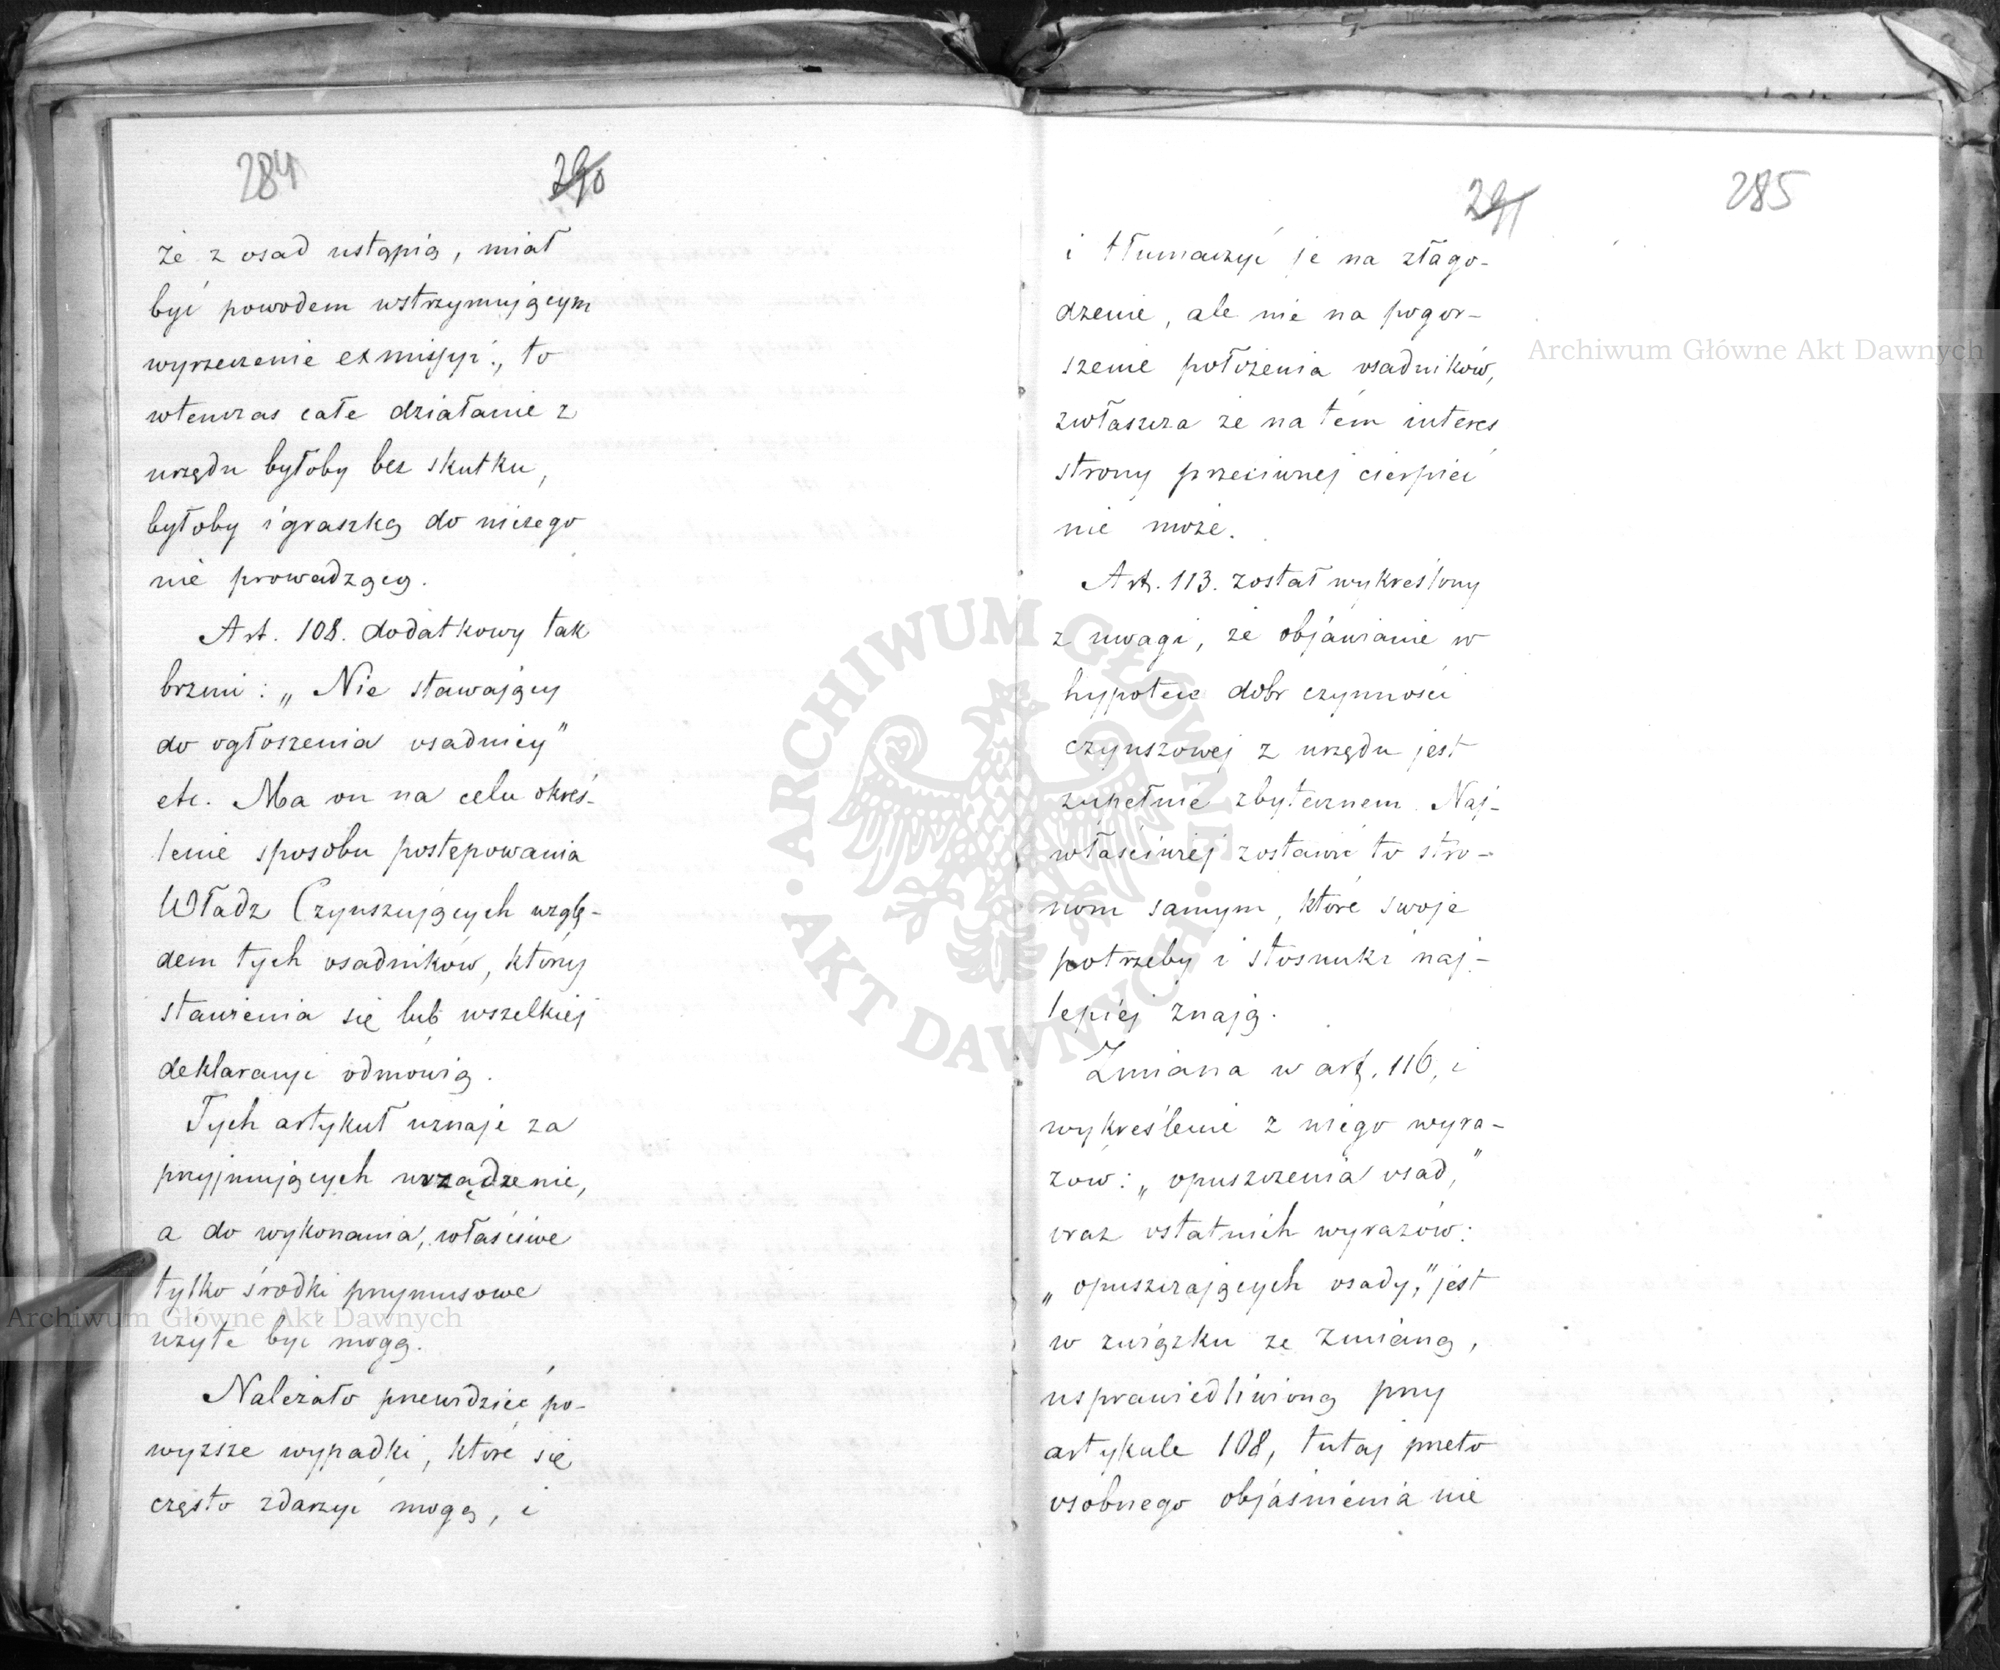 284
290
że z osad ustąpią, miał
być powodem wstrzymującym
wyrzeczenie exmissyi, to
wtenczas całe działanie z
urzędu byłoby bez skutku,
byłoby igraszką do niczego
nie prowadzącą.
Art. 108. dodatkowy tak
brzmi: „Nie stawający
do ogłoszenia osadnicy"
etc. Ma on na celu okreś-
lenie sposobu postępowania
Władz Czynszujących wzglę-
dem tych osadników, którzy
stawienia się lub wszelkiej
deklaracyi odmówią.
Tych artykuł uznaje za
przyjmujących urządzenie,
a do wykonania, właściwe
tylko środki przymusowe
użyte być mogą.
Należało przewidzieć po-
wyższe wypadki, które się
często zdarzyć mogą, i
291
285
i tłumaczyć je na złago-
dzenie, ale nie na pogor-
szenie położenia osadników,
zwłaszcza że na tém interes
strony przeciwnej cierpieć
nie może.
Art. 113. został wykreślony
z uwagi, że objawianie w
hypotece dóbr czynności
czynszowej z urzędu jest
zupełnie zbytecznem. Naj-
właściwiej zostawić to stro-
nom samym, które swoje
potrzeby i stosunki naj-
lepiéj znają.
Zmiana w art. 116, i
wykreślenie z niego wyra-
zów: „opuszczenia osad,"
oraz ostatnich wyrazów:
„opuszczających osady," jest
w związku ze zmianą,
usprawiedliwioną przy
artykule 108, tutaj przeto
osobnego objaśnienia nie
Archiwum Główne Akt Dawnych
Archiwum Główne Akt Dawnych
ARCHIWUM GŁÓWNE · AKT DAWNYCH ·